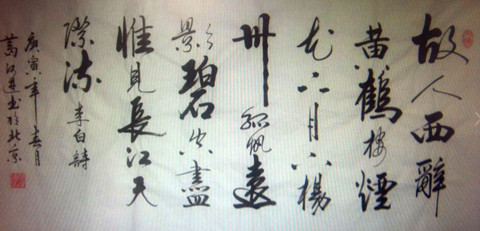 故人西辭
黃鶴樓煙
花三月下揚
州孤帆遠
影碧空盡
惟見長江天
際流 李白詩
庚寅年春月
書於北京